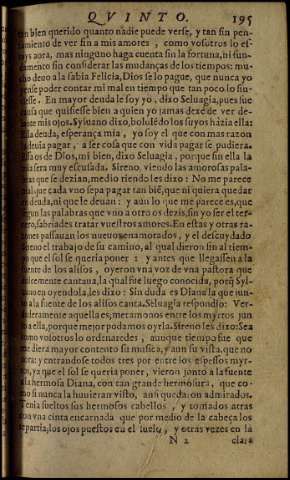 QVINTO. 195
bien querido quanto nadie puede verse, y tan sin pen-
samiento de ver fin a mis amores, como vosotros lo es-
tays aora, mas ninguno haga cuenta sin la fortuna, ni fun-
damento sin considerar las mudanças de los tiempos: mu-
cho deuo a la sabia Felicia, Dios se lo pague, que nunca yo
pense poder contar mi mal en tiempo que tan poco lo sin-
tiesse. En mayor deuda le soy yo, dixo Seluagia, pues fue
causa que quisiesse bien a quien yo jamas dexè de ver de-
lante mis ojos. Syluano dixo, boluiédo los suyos házia ella:
Essa deuda, esperança mia, yo soy el que con mas razon
la deuia pagar, a ser cosa que con vida pagar se pudiera.
Essa os de Dios, mi bien, dixo Seluagia, porque sin ella la
mia sera muy escusada. Sireno, viendo las amorosas pala-
bras que se dezian, medio riendo les dixo: No me parece
mal que cada vno sepa pagar tan bié, que ni quiera quedar
en deuda, ni que le deuan: y aun lo que me parece es, que
segun las palabras que vno a otro os dezis, sin yo ser el ter-
cero, sabriades tratar vuestros amores. En estas y otras ra-
zones passauan los nueuos enamorados, y el descuydado
Sireno el trabajo de su camino, al qual dieron fin al tiem-
po que el sol se queria poner: y antes que llegassen a la
fuente de los alisos, oyeron vna voz de vna pastora que
dulcemente cantaua, la qual fue luego conocida, porq̃ Syl-
uano en oyendola, les dixo: Sin duda es Diana la que jun-
to a la fuente de los alisos canta. Seluagia respondio: Ver-
daderamente aquella es, metamonos entre los myrtos jun-
to a ella, porque mejor podamos oyrla. Sireno les dixo: Sea
como vosotros lo ordenaredes, aunque tiempo fue que
me diera mayor contento su musica, y aun su vista, que no
aora: y entrandose todos tres por entre los espessos myr-
tos, ya que el sol se queria poner, vieron junto a la fuente
a la hermosa Diana, con tan grande hermosura, que co-
mo si nunca la huuieran visto, ansi quedaron admirados.
Tenia sueltos sus hermosos cabellos, y tomados atras
con vna cinta encarnada que por medio de la cabeça los
repartia, los ojos puestos en el suelo, y otras vezes en la
N 2 clara